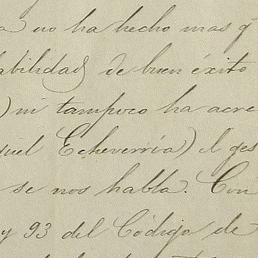 no ha hecho mas q
abilidad de buen éxito
) ni tampoco ha acre
uel Echeverría) el ges
se nos habla. Con
y 93 del Código de